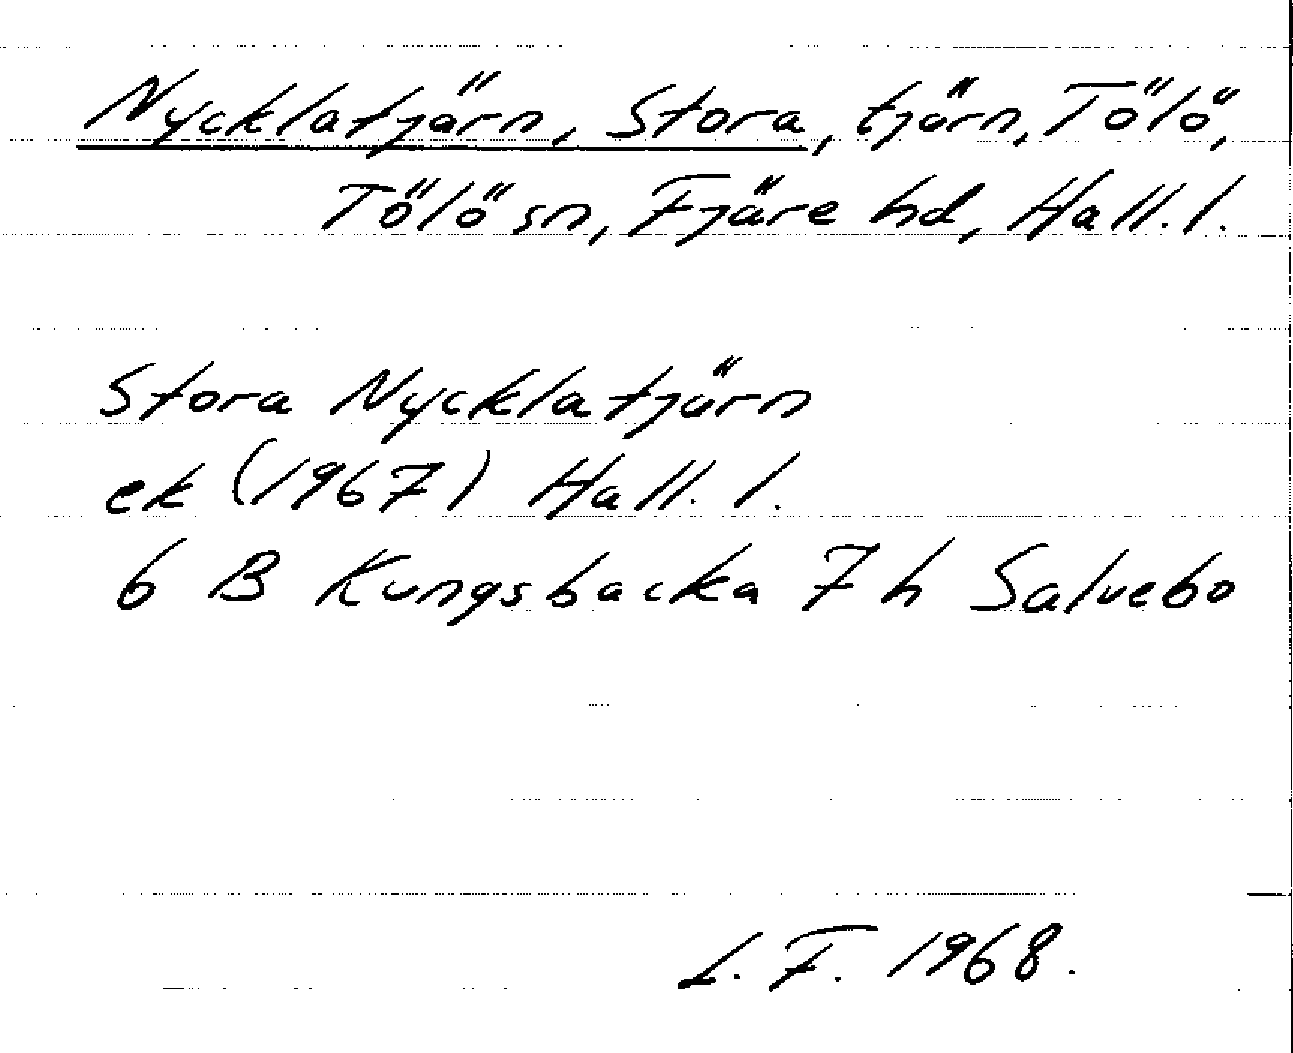 Nycklatjärn, Stora, tjärn, Tölö,
Tölö sn, Fjäre hd, Hall. l.
Stora Nycklatjärn
ek (1967) Hall. l.
6 B Kungsbacka 7 h Salvebo
L. F. 1968.